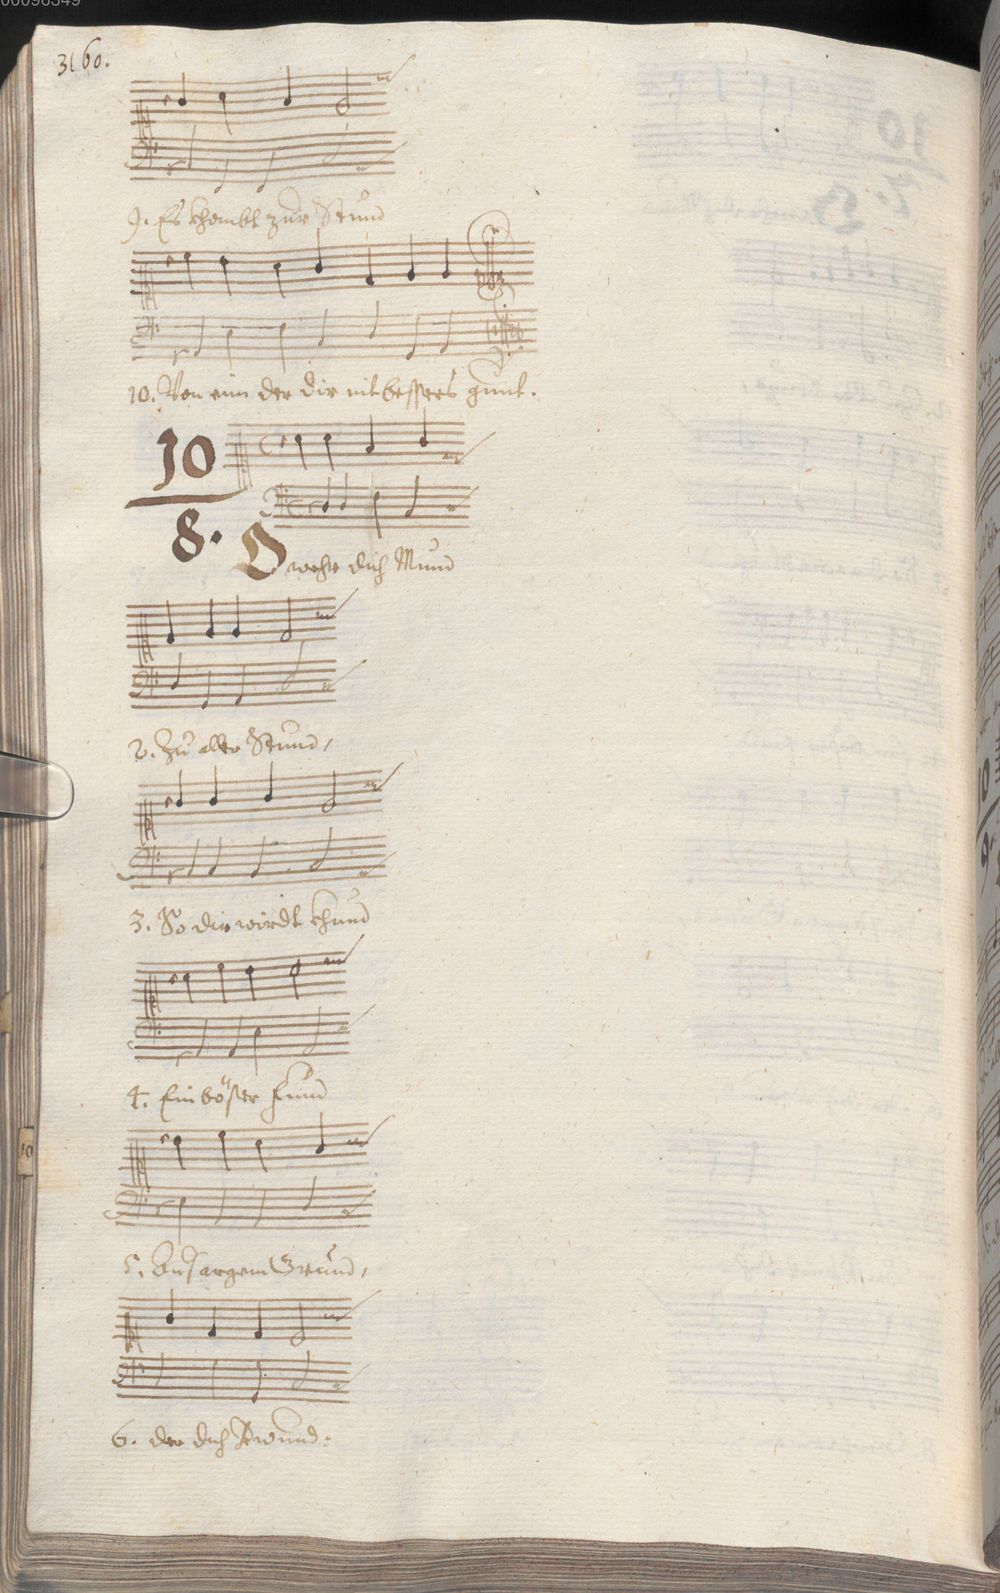 00098349
3160.
9. Es khombt zur Stund
10. Von eim der dir nit bessers gunt.
10
8. O wehr dich Mund
2. Zu aller Stund,
3. So dir wirdt khund
4. Ein böser fund
5. Aus argem Grund,
6. der dich
10